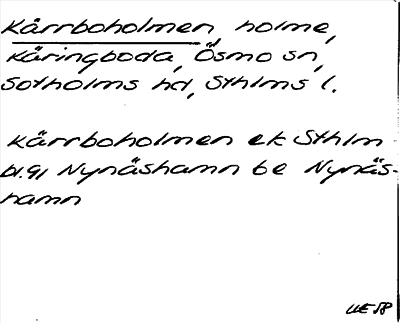 Kårrboholmen, holme,
Käringboda, Ösmo sn,
Sotholms hd, Sthlms l.
Kårrboholmen ek Sthlm
bl.91 Nynäshamn be Nynäs-
hamn
UE 58